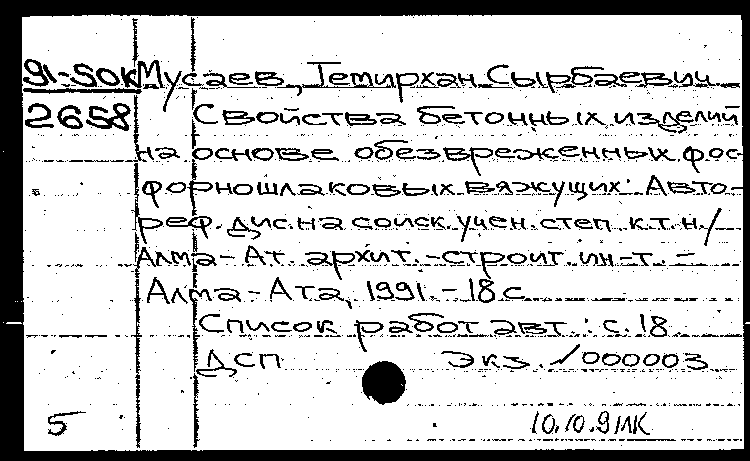 91-50К Мусаев, Темирхан Сырбаевич
2658 Свойства бетонных изделий
на основе обезвреженных фос
форношлаковых вяжущих: Авто-
реф. дис. на соиск. учен. степ. к.т.н./
Алма-Ат. архит.-строит. ин-т. -
Алма-Ата, 1991. - 18 с.
Список работ авт.: с. 18.
ДСП Экз. √000003
5 10.10.91 ЛК